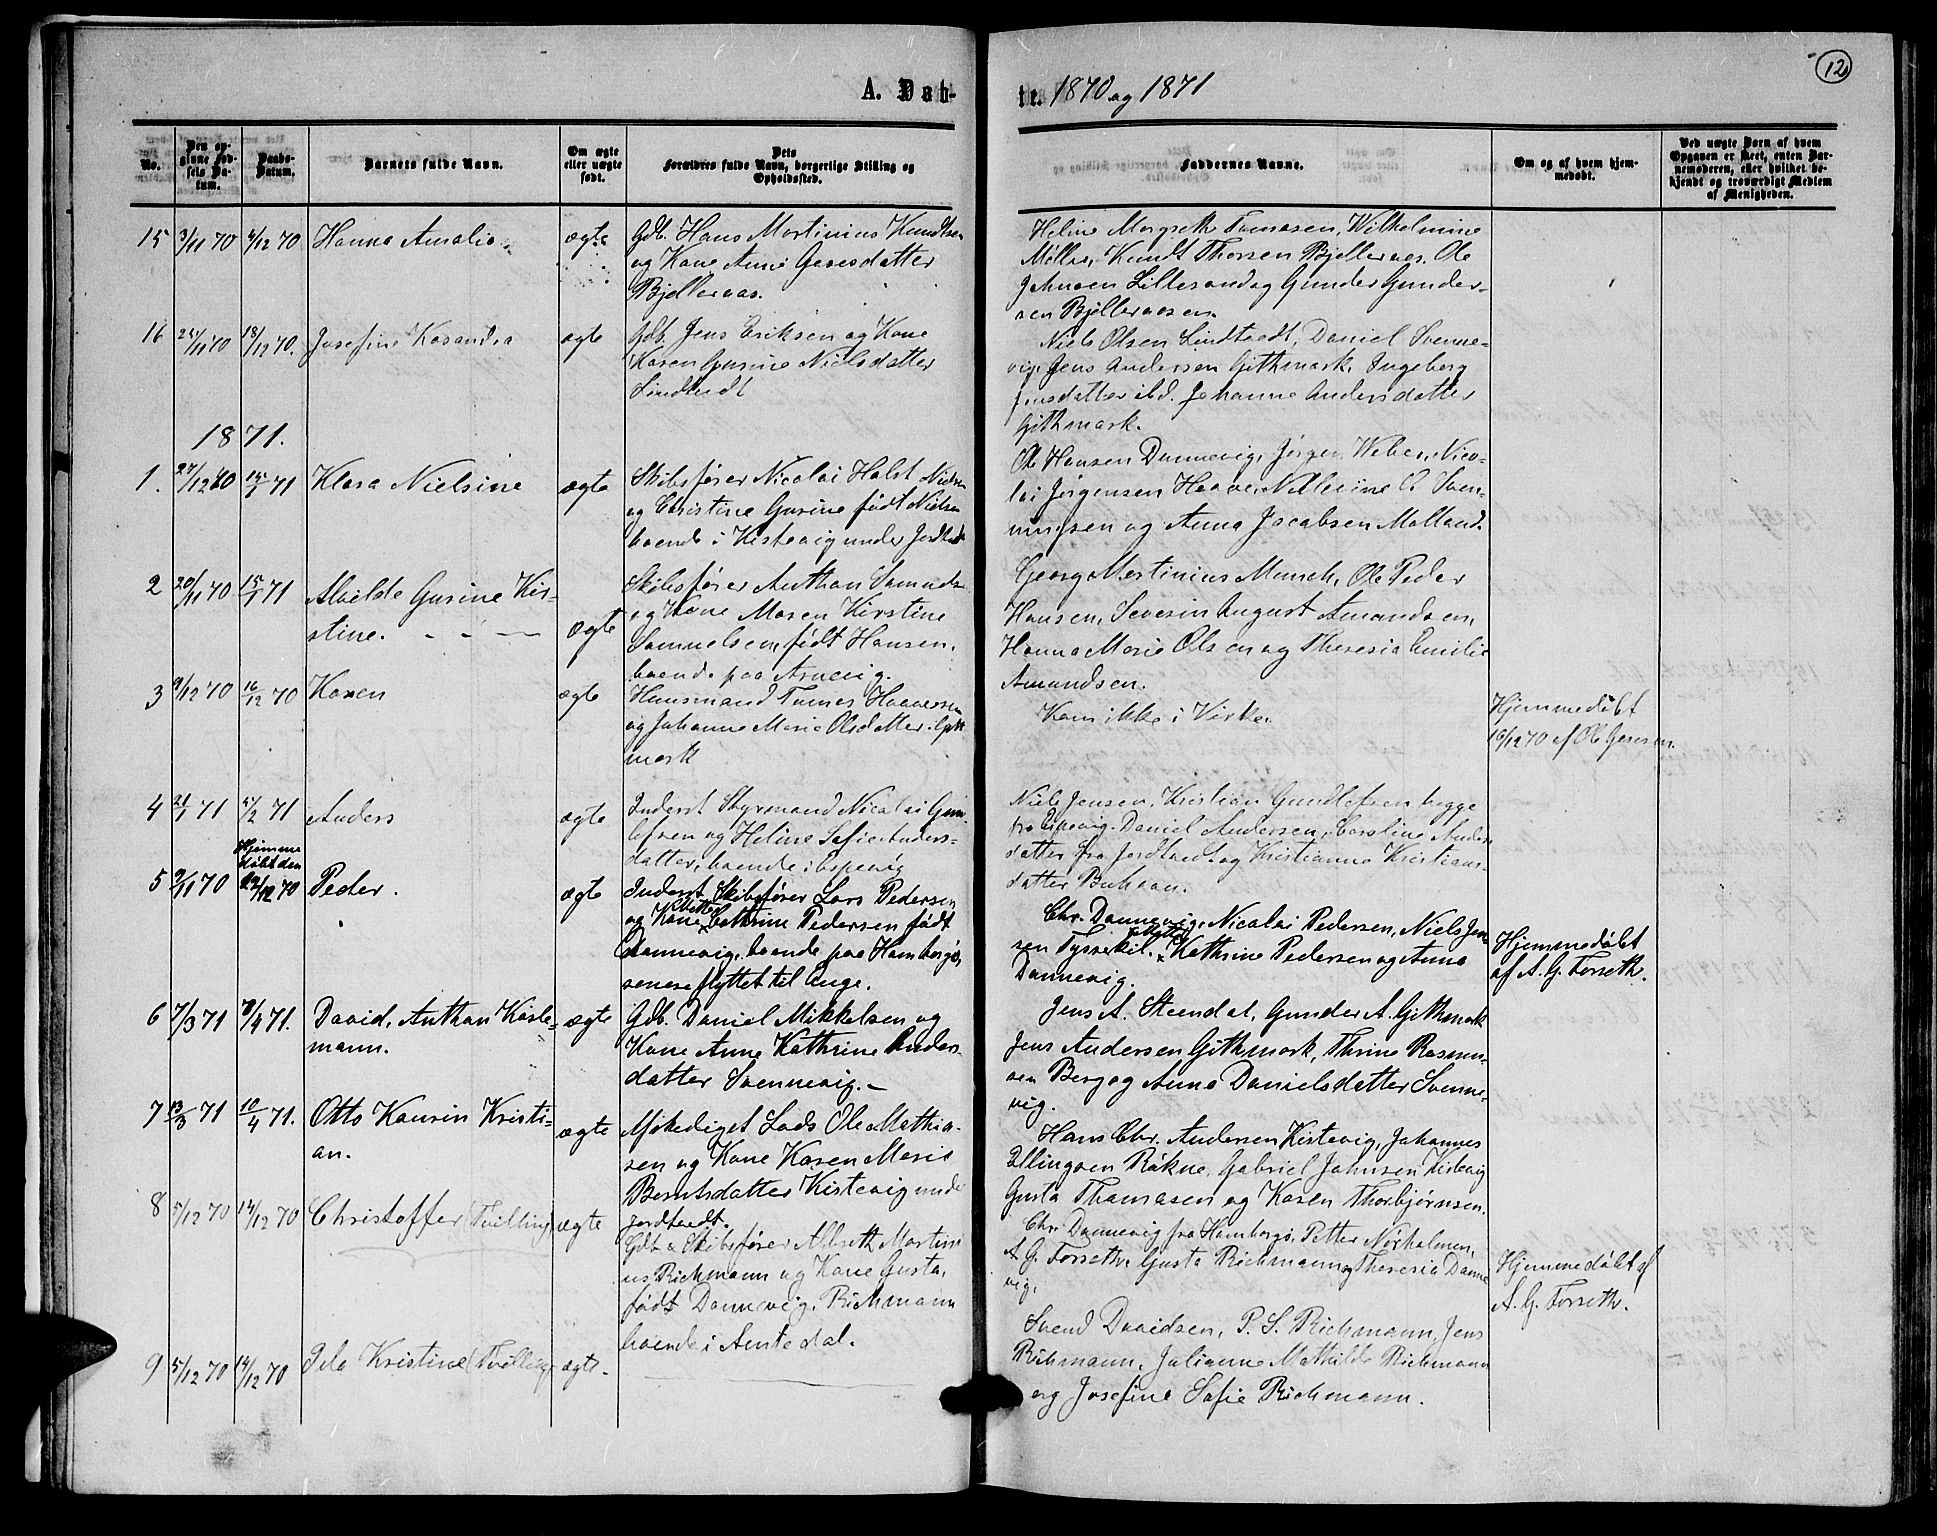 A. Døb-
te. 1870 og 1871
12
No.
Den opgivne Fødsels Datum.
Daabs-Datum.
Barnets fulde Navn.
Om ægte eller uægte født.
Dets Forældres fulde Navn, borgerlige Stilling og Opholdssted.
Faddernes Navne.
Om og af hvem hjemmedøbt.
Ved uægte Børn af hvem Opgaven er skeet, enten Barnemoderen, eller hvilket bekjendt og troværdigt Medlem af Menigheden.
15 3/11 70 4/12 70 Hanna Amalia. ægte
Gdb. Hans Martinius Knudtsen
og Kone Anne Gjeruldsdatter
Bjelleraas.
Heline Margrethe Tomasen, Wilhelmine
Møller, Knudt Thorsen Bjelleraas. Ole
Johnsen Lillesand og Gunder Gunder-
sen Bjelleraasen.
16 24/11 70 18/12 70. Josefine Kasandra ægte
Gdb. Jens Eriksen og Kone
Karen Gusine Nielsdatter
Lindtvedt
Niels Olsen Lindtvedt, Daniel Svenne-
vig, Jens Andersen Githmark, Ingeborg
Jensdatter ibd. Johanne Andersdatter
Githmark.
1871.
1. 27/12 60 15/1 71 Klara Nielsine ægte
Skibsfører Nicolai Holst Nielsen
og Christine Gusine født Nielsen
boende i Kistevig under Jordtvedt
Ole Hansen Dannevig, Jørgen Weber, Nico-
lai Jørgensen Haave, O. Sven-
ningsen og Anna Jacobsen Molland.
2 20/11 70 15/1 71 Alvilde Gusine Kir-
stine. ægte
Skibsfører Anthon Samuels
og Kone Maren Kirstine
Samuelsen, født Hansen,
boende paa Arnevig.
Georg Martinius Munch, Ole Peder
Hansen, Severin August Amandsen,
Hanna Marie Olsen og Theresia Emilie
Amandsen.
3 9/12 70 16/12 70 Karen ægte
Huusmand Tomas Haaversen
og Johanne Marie Olsdatter
mark
Kom ikke i Kirke.
Hjemmedøbt
16/12 70 af Ole Gjerusen.
4 21/1 71 /2 71 Anders ægte
Inderst Styrmand Nicolai Gun-
lefsen og Heline Sofie Anders-
datter, boende i Espevig
Niels Jensen, Kristian Gundlefsen begge
fra Espevig. Daniel Andersen, Caroline Anders-
datter fra Jordtvedt og Kristianne Kristians-
datter
5 9/11 70 Hjemme
døbt den
/12 70 Peder. ægte
Inderst Skibsfører Lars Pedersen
og Kone Cathrine Pedersen født
Dannevig, boende paa Hamborgø,
senere flyttet til Enge.
Chr. Dannevig, Nicolai Pedersen, Niels Jen-
sen Tyssekil. Kathrine Pedersen og Anna
Dannevig.
Hjemmedøbt
af A. G. Forseth.
6 7/3 71 9/4 71. David Anthon Kaste-
mann. ægte
Gdb. Daniel Mikkelsen og
Kone Anne Kathrine Anders-
datter Svennevig. —
Jens A. Steendal, Gunder A. Githmark
Jens Andersen Githmark, Thrine Rasmus-
sen Berg og Anne Danielsdatter Svenne-
vig.
7 13/3 71 10/4 71. Otto Kaurin Kristi-
an. ægte
Lods Ole Mathia-
sen og Kone Karen Marie
Berntsdatter Kistevig under
Jordtvedt.
Hans Chr. Andersen Kistevig, Johannes
Ellingsen Røkne, Gabriel Johnsen Kistevig
Gusta Thomasen og Karen Thorbjørnsen.
8 5/12 70 14/12 70 Christoffer (Tvilling) ægte
Gdb. & Skibsfører Alberth Martini
us Richmann og Kone Gusta,
født Dannevig, Richmann
boende i Amtedal.
Chr. Dannevig fra Hamborgø, Petter Nørholmen,
A. G. Forseth, Gusta Richmann og Theresia Danne
vig.
Hjemmedøbt af
A. G. Forseth.
9 5/12 70 14/12 70 Ida Kristine (Tvilling) ægte.
Svend Davidsen, P. S. Richmann, Jens
Richmann, Julianne Mathilde Richmann
og Josefine Sofie Richmann.